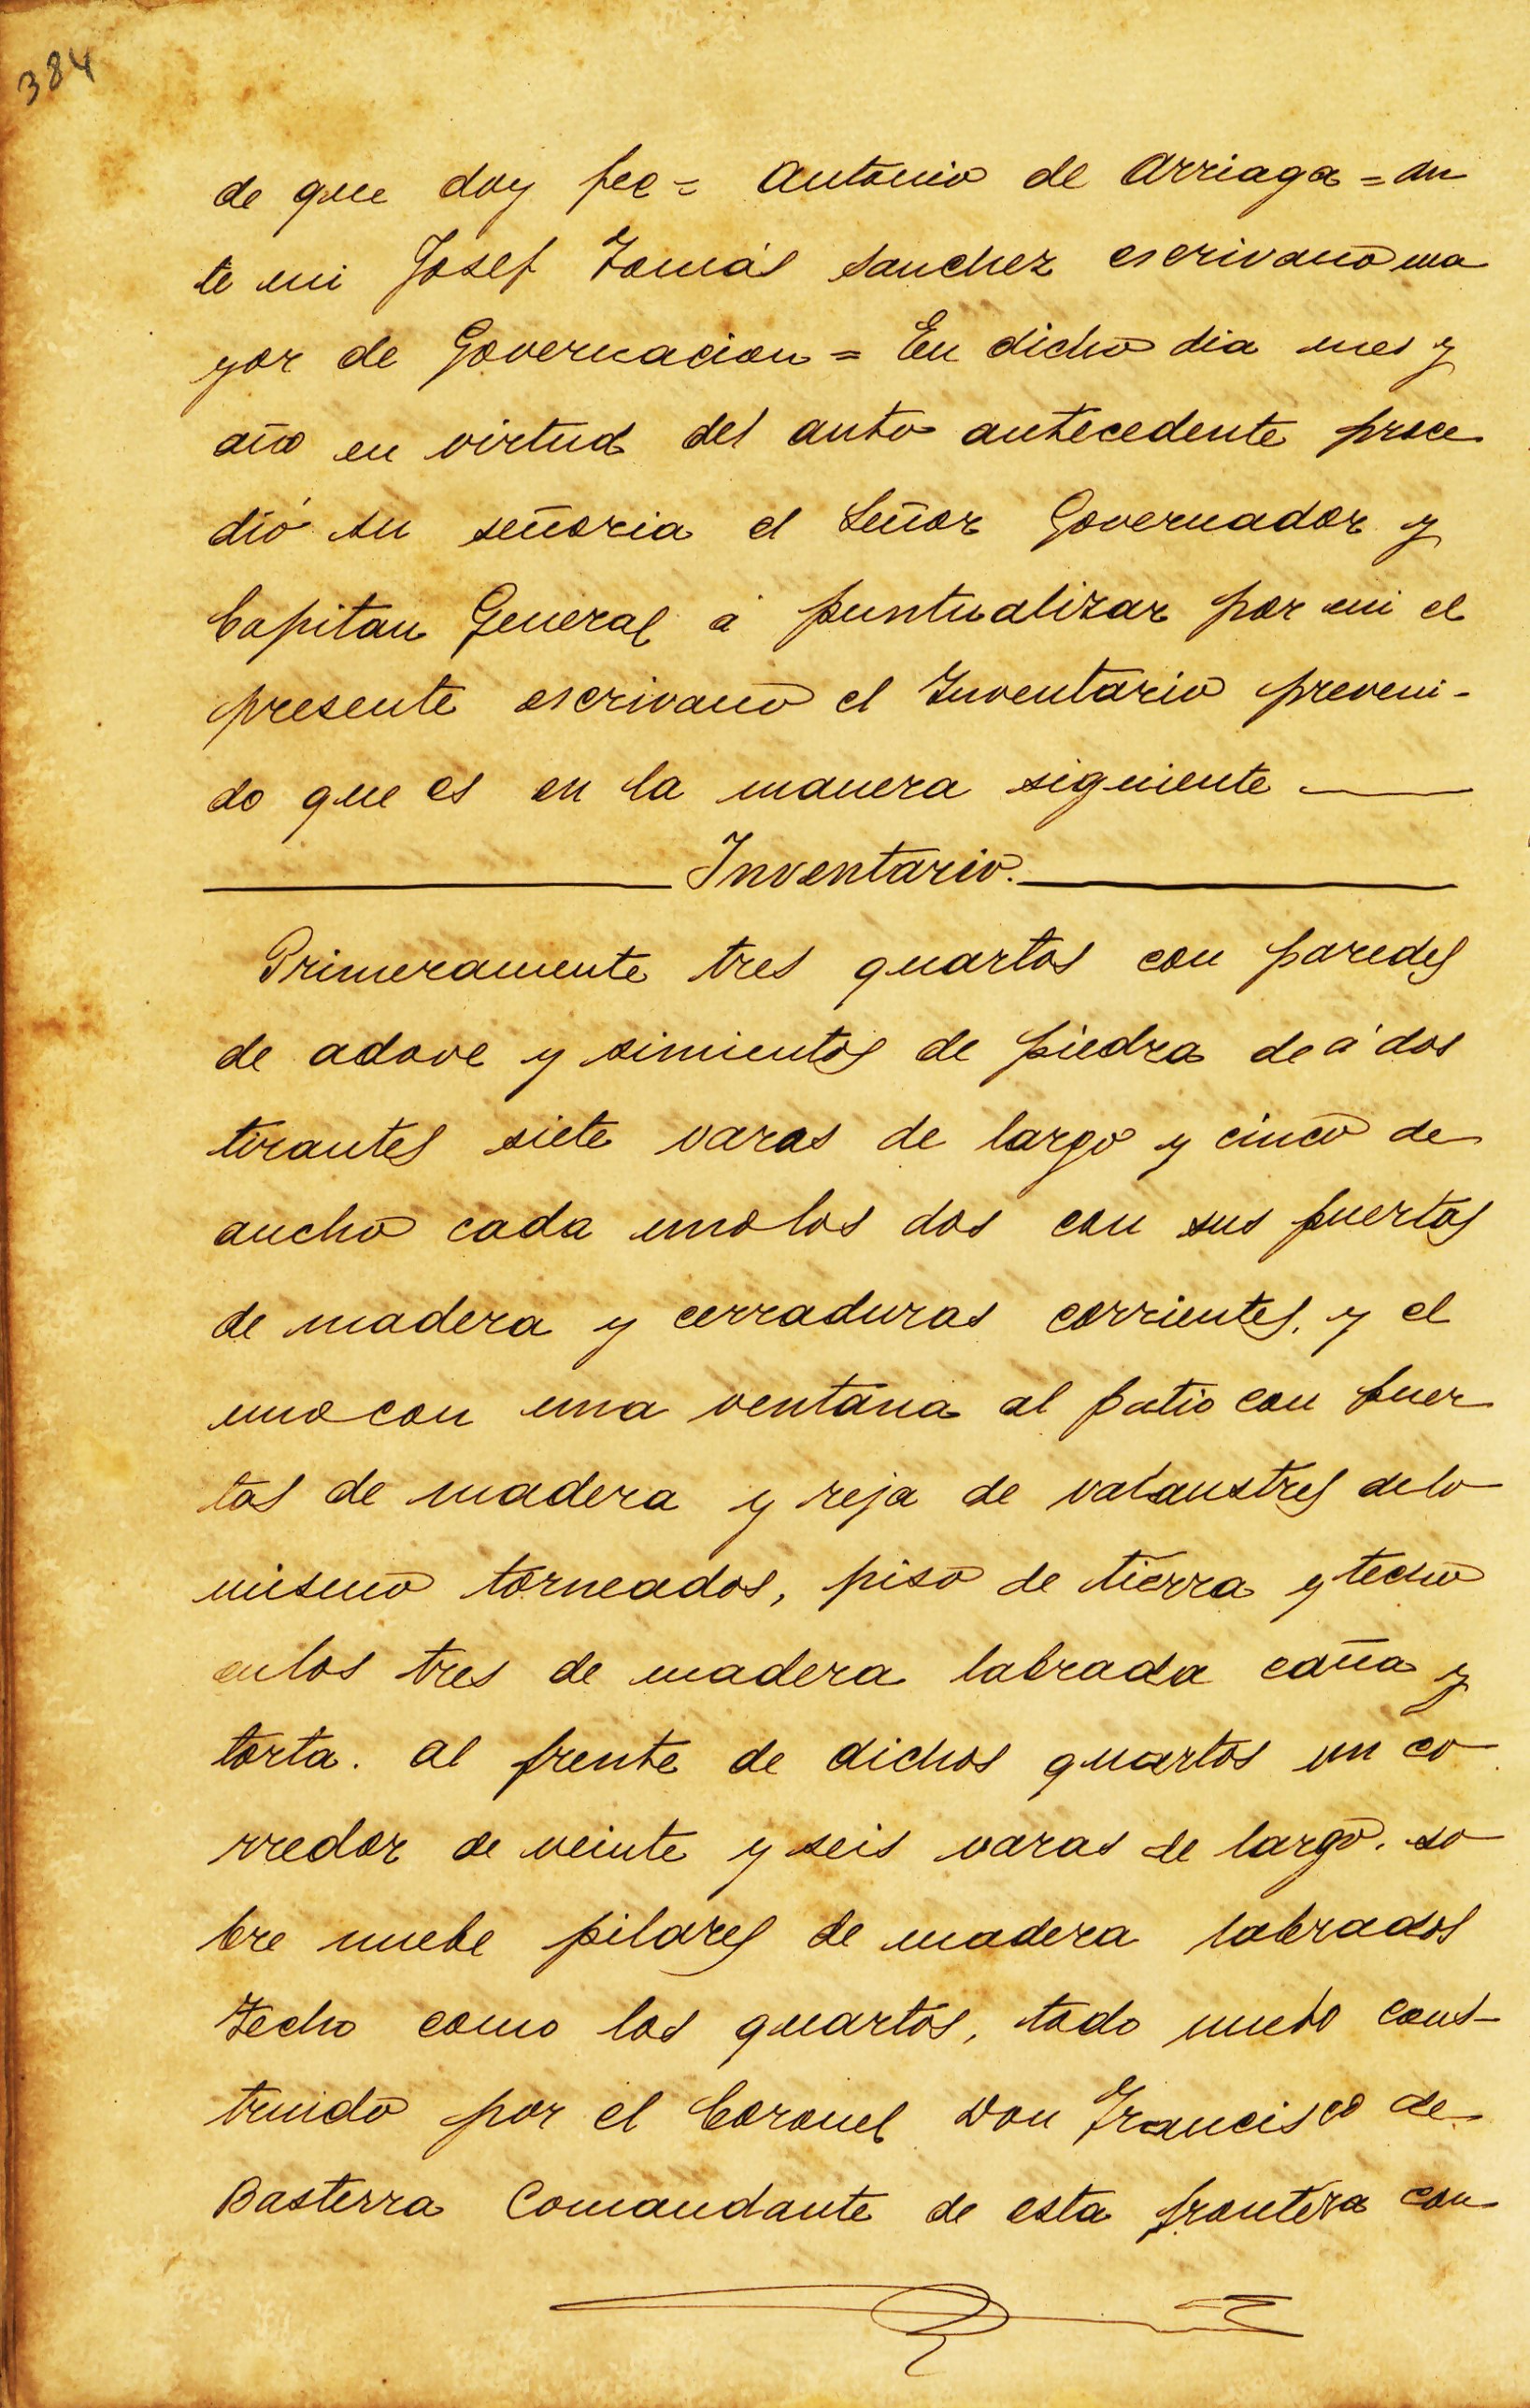 384
de que doy fee = Antonio de Arriaga = an
te mi Josef Tomás Sanchez escrivano ma
yor de Governacion = En dicho dia mes y
año en virtud del auto antecedente proce
dió su señoria el Señor Governador y
Capitan General á puntualizar por mi el
presente escrivano el Inventario preveni-
do que es en la manera siguiente
Inventario.
Primeramente tres quartos con paredes
de adove y simientos de piedra de á dos
tirantes siete varas de largo y cinco de
ancho cada uno los dos con sus puertas
de madera y cerraduras corrientes, y el
uno con una ventana al patio con puer
tas de madera y reja de valaustres de lo
mismo torneados, piso de tierra y techo
en los tres de madera labrada caña y
torta. al frente de dichos quartos un co
rredor de veinte y seis varas de largo. so
bre nuebe pilares de madera labrados
techo como los quartos, todo nuebo cons-
truido por el Coronel Don Francisco de
Basterra Comandante de esta frontera con